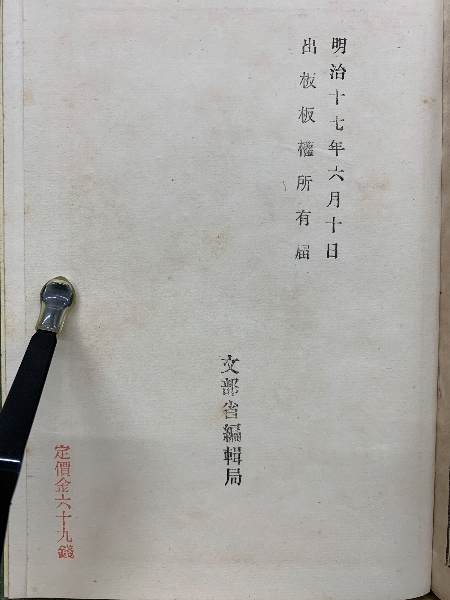 明治十七年六月十日
出板板權所有屆
文部省編輯局
定價金六十九錢